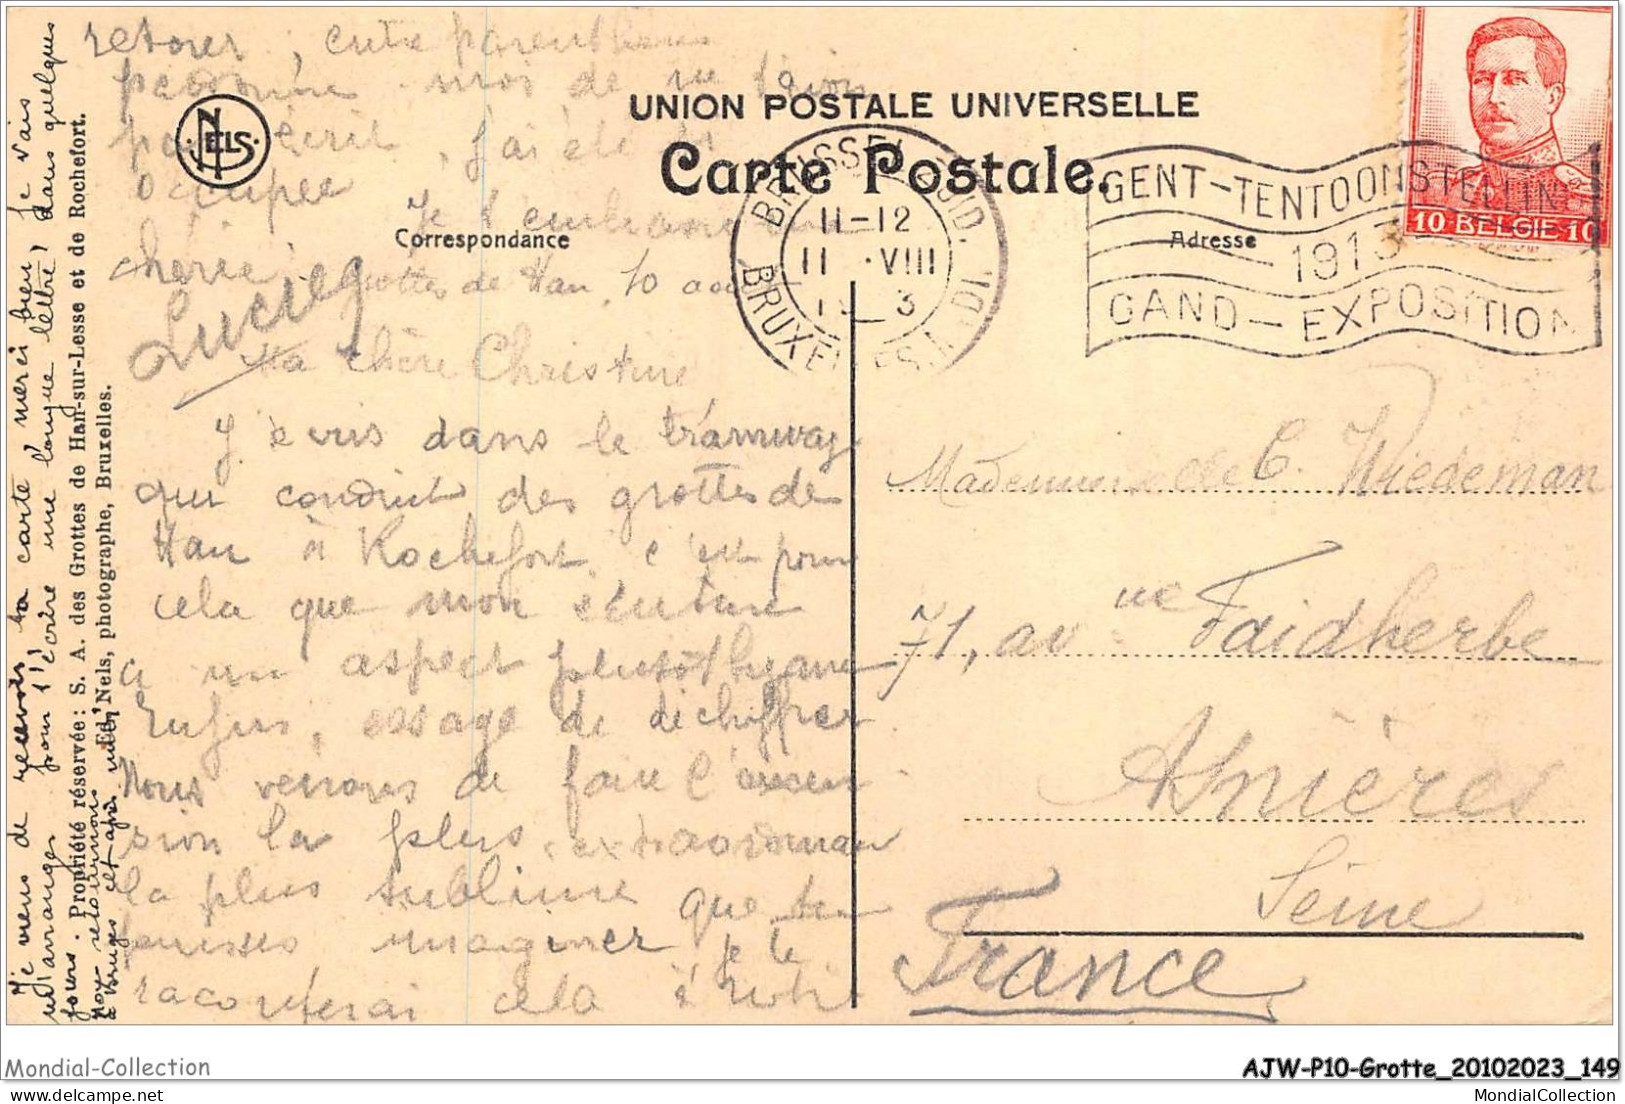 UNION POSTALE UNIVERSELLE
Carte Postale.
Correspondance
Adresse
NELS
BRUSSEL ZUID.
11-12
11 VIII
1913
BRUXELLES MIDI
GENT-TENTOONSTELLING
1913
GAND-EXPOSITION
10 BELGIE 10
Grottes de Han, 10 août
Ma chère Christine
J'écris dans le tramway
qui conduit des grottes de
Han à Rochefort, c'est pour
cela que mon écriture
a un aspect plutôt
Enfin, essaye de déchiffrer
Nous venons de faire l'ascen
sion la plus extraordinaire
la plus sublime que tu
puisses imaginer je te
raconterai cela à notre
retour, entre parenthèses
pardonne-moi de ne t'avoir
pas écrit, j'ai été si
occupée
Je t'embrasse ma
chérie
Lucie
Je viens de recevoir ta carte merci bien, je vais
m'arranger pour t'écrire une longue lettre dans quelques
jours.
Nous retournons
à Bruges et après
Propriété réservée: S. A. des Grottes de Han-sur-Lesse et de Rochefort.
Ed. Nels, photographe, Bruxelles.
Mademoiselle C. Wiedeman
71, avenue Faidherbe
Asnières
Seine
France
Mondial-Collection
AJW-P10-Grotte_20102023_149
MondialCollection
MondialCollection